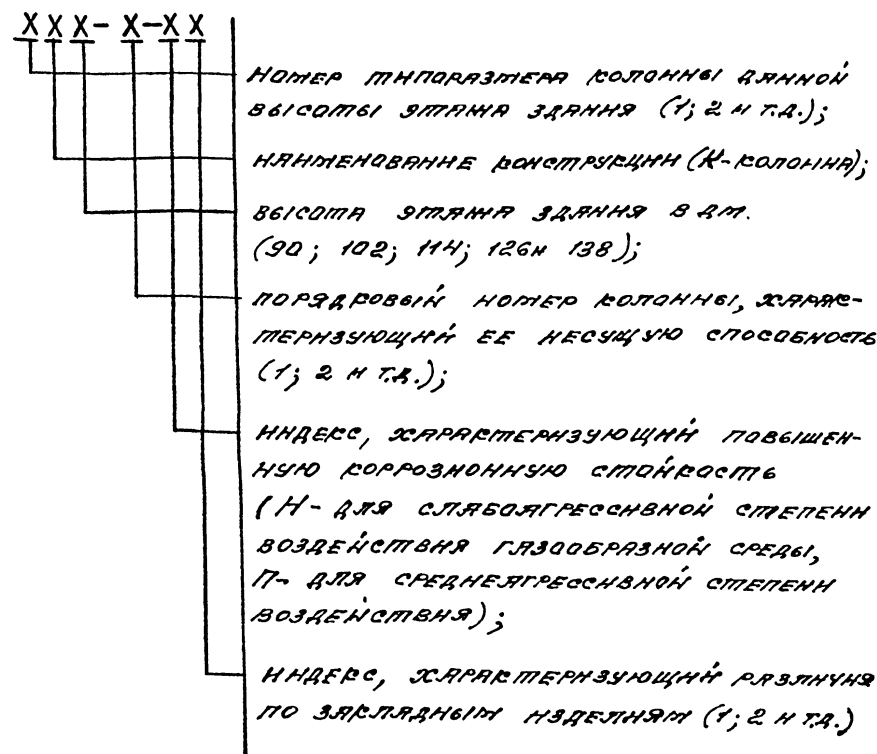 ХХХ-Х-ХХ
Номер типоразмера колонны данной
высоты этажа здания (1; 2 и т.д.);
наименование конструкции (К-колонна);
высота этажа здания в дм.
(90; 102; 114; 126и 138);
порядковый номер колонны, харак-
теризующий ее несущую способность
(1; 2 и т.д.);
индекс, характеризующий повышен-
ную коррозионную стойкость
(Н- для слабоагрессивной степени
воздействия газообразной среды,
П- для среднеагрессивной степени
воздействия);
индекс, характеризующий различия
по закладным изделиям (1; 2 и т.д.)